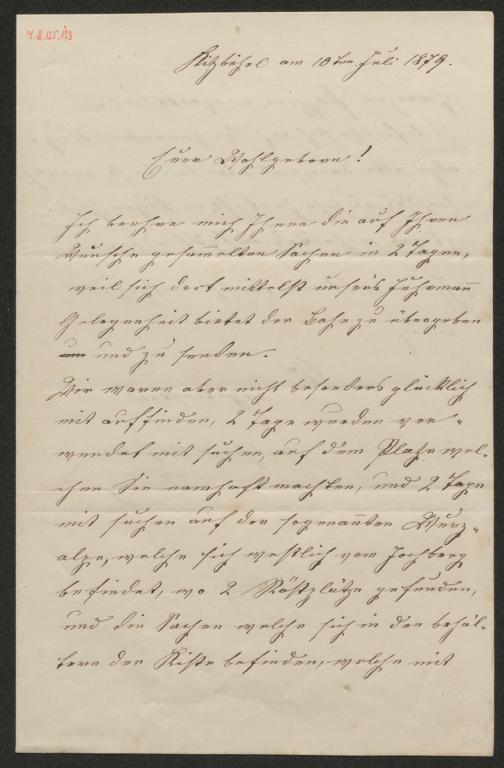 Kitzbühel am 10ten Juli 1879.
Euer Wohlgeboren!
Ich beehre mich Ihnen die auf Ihren
Wunsche gesam̅elten Sachen in 2 Tagen,
weil sich dort mittelst unsers Fuhrman̅
Gelegenheit bietet der Bahn zu übergeben
und zu senden.
Wir waren aber nicht besonders glücklich
mit auffinden, 2 Tage wurden ver-
wendet mit suchen, auf dem Platze wel-
chen Sie namhaft machten, und 2 Tage
mit suchen auf der sogenan̅ten Wurz-
alpe, welche sich westlich vom Jochberg
befindet, wo 2 Röstplätze gefunden,
und die Sachen welche sich in den behäl-
tern der Kiste befinden, welche mit